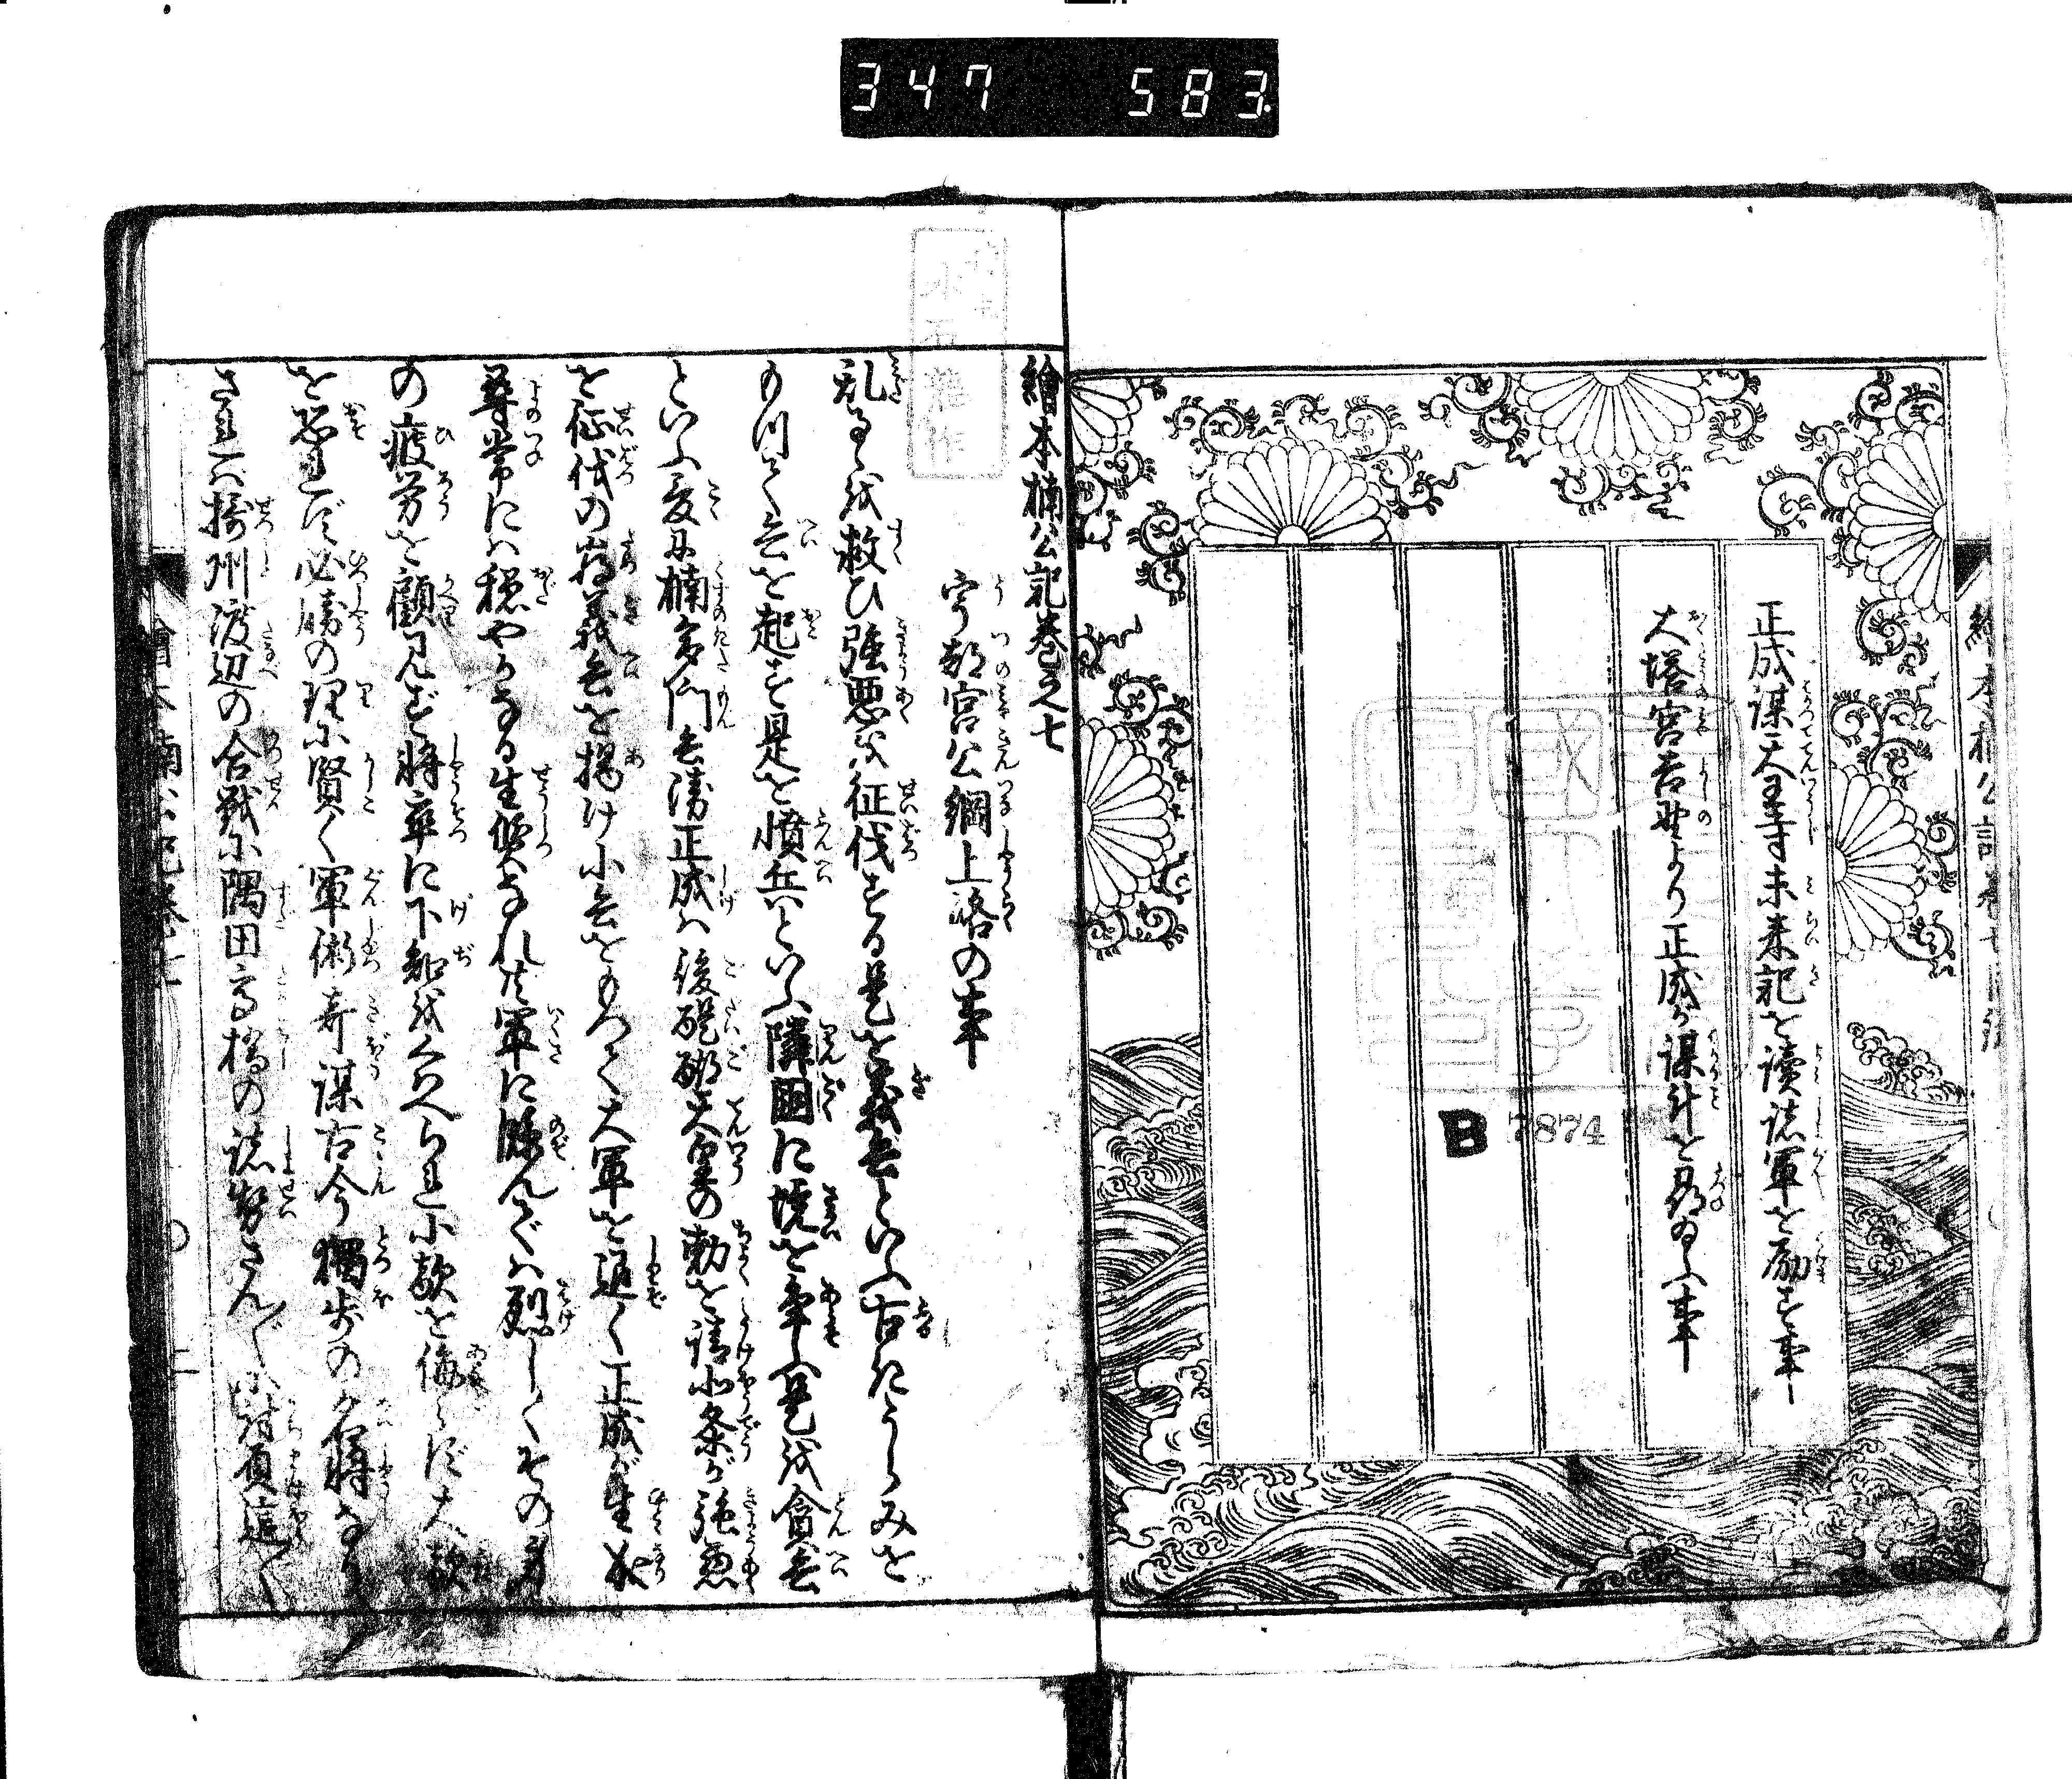 347 583
正成謀天王寺未来記を讀諸軍を勵す事
大塔宮吉野より正成が謀計を尋ゐふ事
B 7874
繪本楠公記巻之七
宇都宮公綱上洛の事
乱るゝを救ひ強悪を征伐する是を義兵といふ古きうらみを
もつて兵を起す是を憤兵といふ隣国に境を争ふ是を貪兵
といふ爰に楠多門兵衛正成は後醍醐天皇の勅を請北条が強悪
を征伐の為義兵を揚け小兵をもつて大軍を退く正成が生
尋常には穏やかなる生質なれ共軍に臨んでは烈しくその身
の疲労を顧見ず将卒に下知をくはへられ小敵を侮らず大敵
を恐れず必勝の理に賢く軍術奇謀古今獨歩の名将なり
されば摂州渡辺の合戦に隅田高橋の諸勢さん〴〵に討負這〳〵